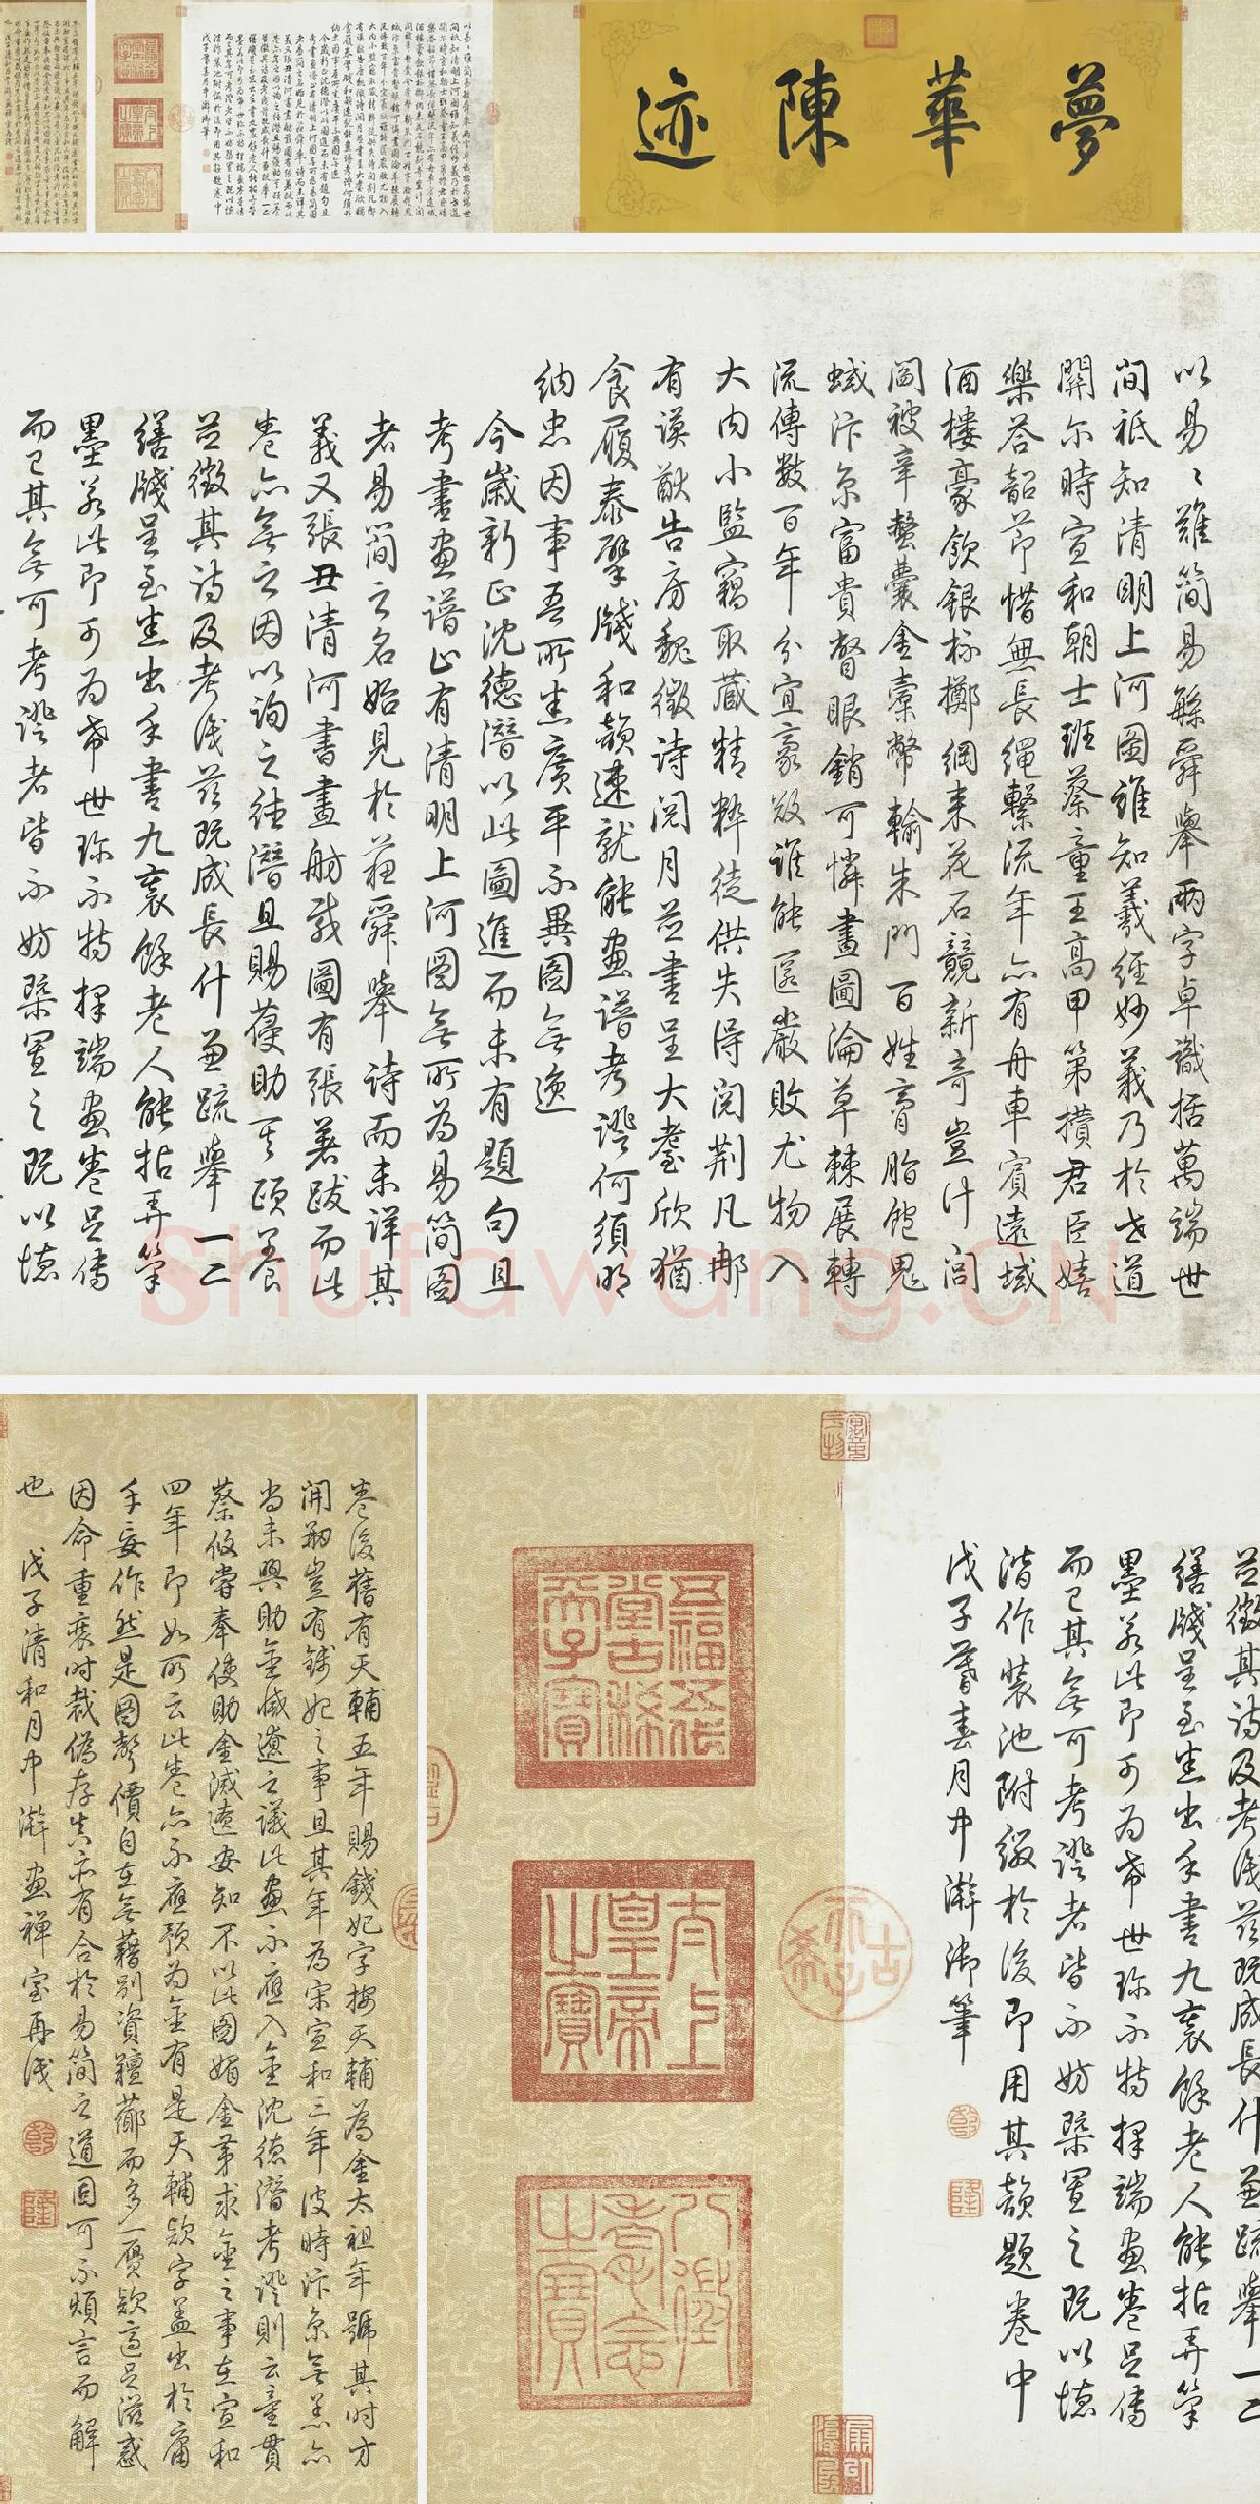 夢華陳迹
以易〻難簡易繇舜舉兩字卓識括萬端世
间祇知清明上河图誰知羲經妙義乃於世道
關尔時宣和朝士班蔡童王高甲第攢君臣嬉
樂荅韶节惜無長绳繫流年亦有舟車賓遠域
酒樓豪飲銀标擲綱来花石競新奇豈计闾
閻被辛螫囊金橐幣輸朱門百姓膏脂飽鬼
蜮汴京富貴瞥眼銷可憐畫圖淪草棘展轉
流傳数百年分宜豪敚誰能匿嚴敗尤物入
大内小監竊取蔵精粹徒供失得阅荆凡那
有謨猷告房魏徵诗阅月並書呈大耋欣猶
食履泰擘牋和韻速就能画譜考證何須明
纳忠因事吾所 廣平不異图無逸
今歲新正沈德潛以此圖進而未有題句且
考書画譜止有清明上河图無所為易简图
者易简之名始見於蘇舜舉诗而未详其
義又張丑清河書畫舫載圖有張著跋而此
卷亦無之因以询之德潛且賜葠助其頤養
並徵其诗及考识兹既成長什並疏舉一二
繕牋呈至 出手書九袠餘老人能拈弄筆
墨若此即可为希世珍不特择端画卷足傳
而已其無可考證者皆不妨槩置之既以德
並徵其诗及考识兹既成長什並疏舉一二
繕牋呈至 出手書九袠餘老人能拈弄筆
墨若此即可为希世珍不特择端画卷足傳
而已其無可考證者皆不妨槩置之既以德
潛作裝池附缀於後即用其韻題卷中
戊子暮春月中澣御筆
乾
隆
古希天子
五福五代堂古稀天子寶
太上皇帝之寶
八徵耄念之寶
卷後舊有天輔五年賜錢妃字按天輔為金太祖年號其时方
開剏豈有錢妃之事且其年為宋宣和三年彼時汴京無恙亦
尚未興助金滅遼之議此画不應入金沈德潛考證則云童貫
蔡攸嘗奉使助金滅遼安知不以此图媚金苐求金之事在宣和
四年即如所云此卷亦不應預为金有是天輔款字盖出於庸
手妄作然是图聲價自在無藉别資羶薌而多一赝款適足滋惑
因命重裝时裁偽存真亦有合於易简之道固可不煩言而解
也 戊子清和月中澣画禪室再识
乾
隆
Shufawang.CN